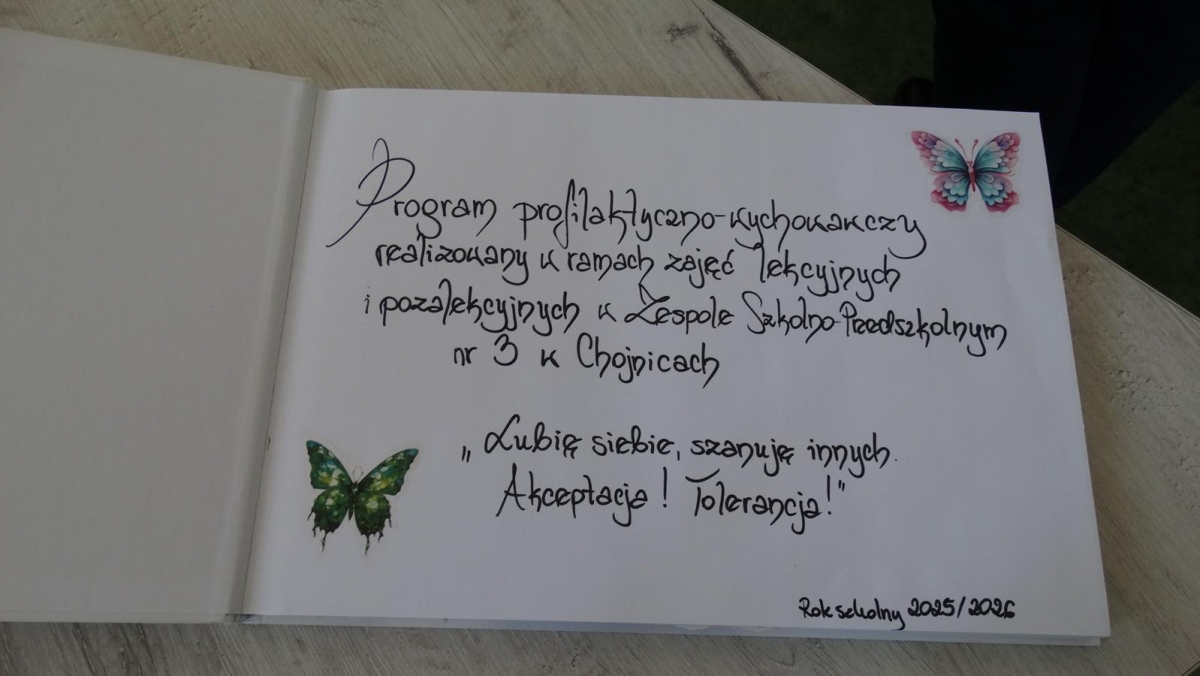 Program profilaktyczno-wychowawczy
realizowany w ramach zajęć lekcyjnych
i pozalekcyjnych w Zespole Szkolno-Przedszkolnym
nr 3 w Chojnicach
„Lubię siebie, szanuję innych.
Akceptacja! Tolerancja!"
Rok szkolny 2025/2026